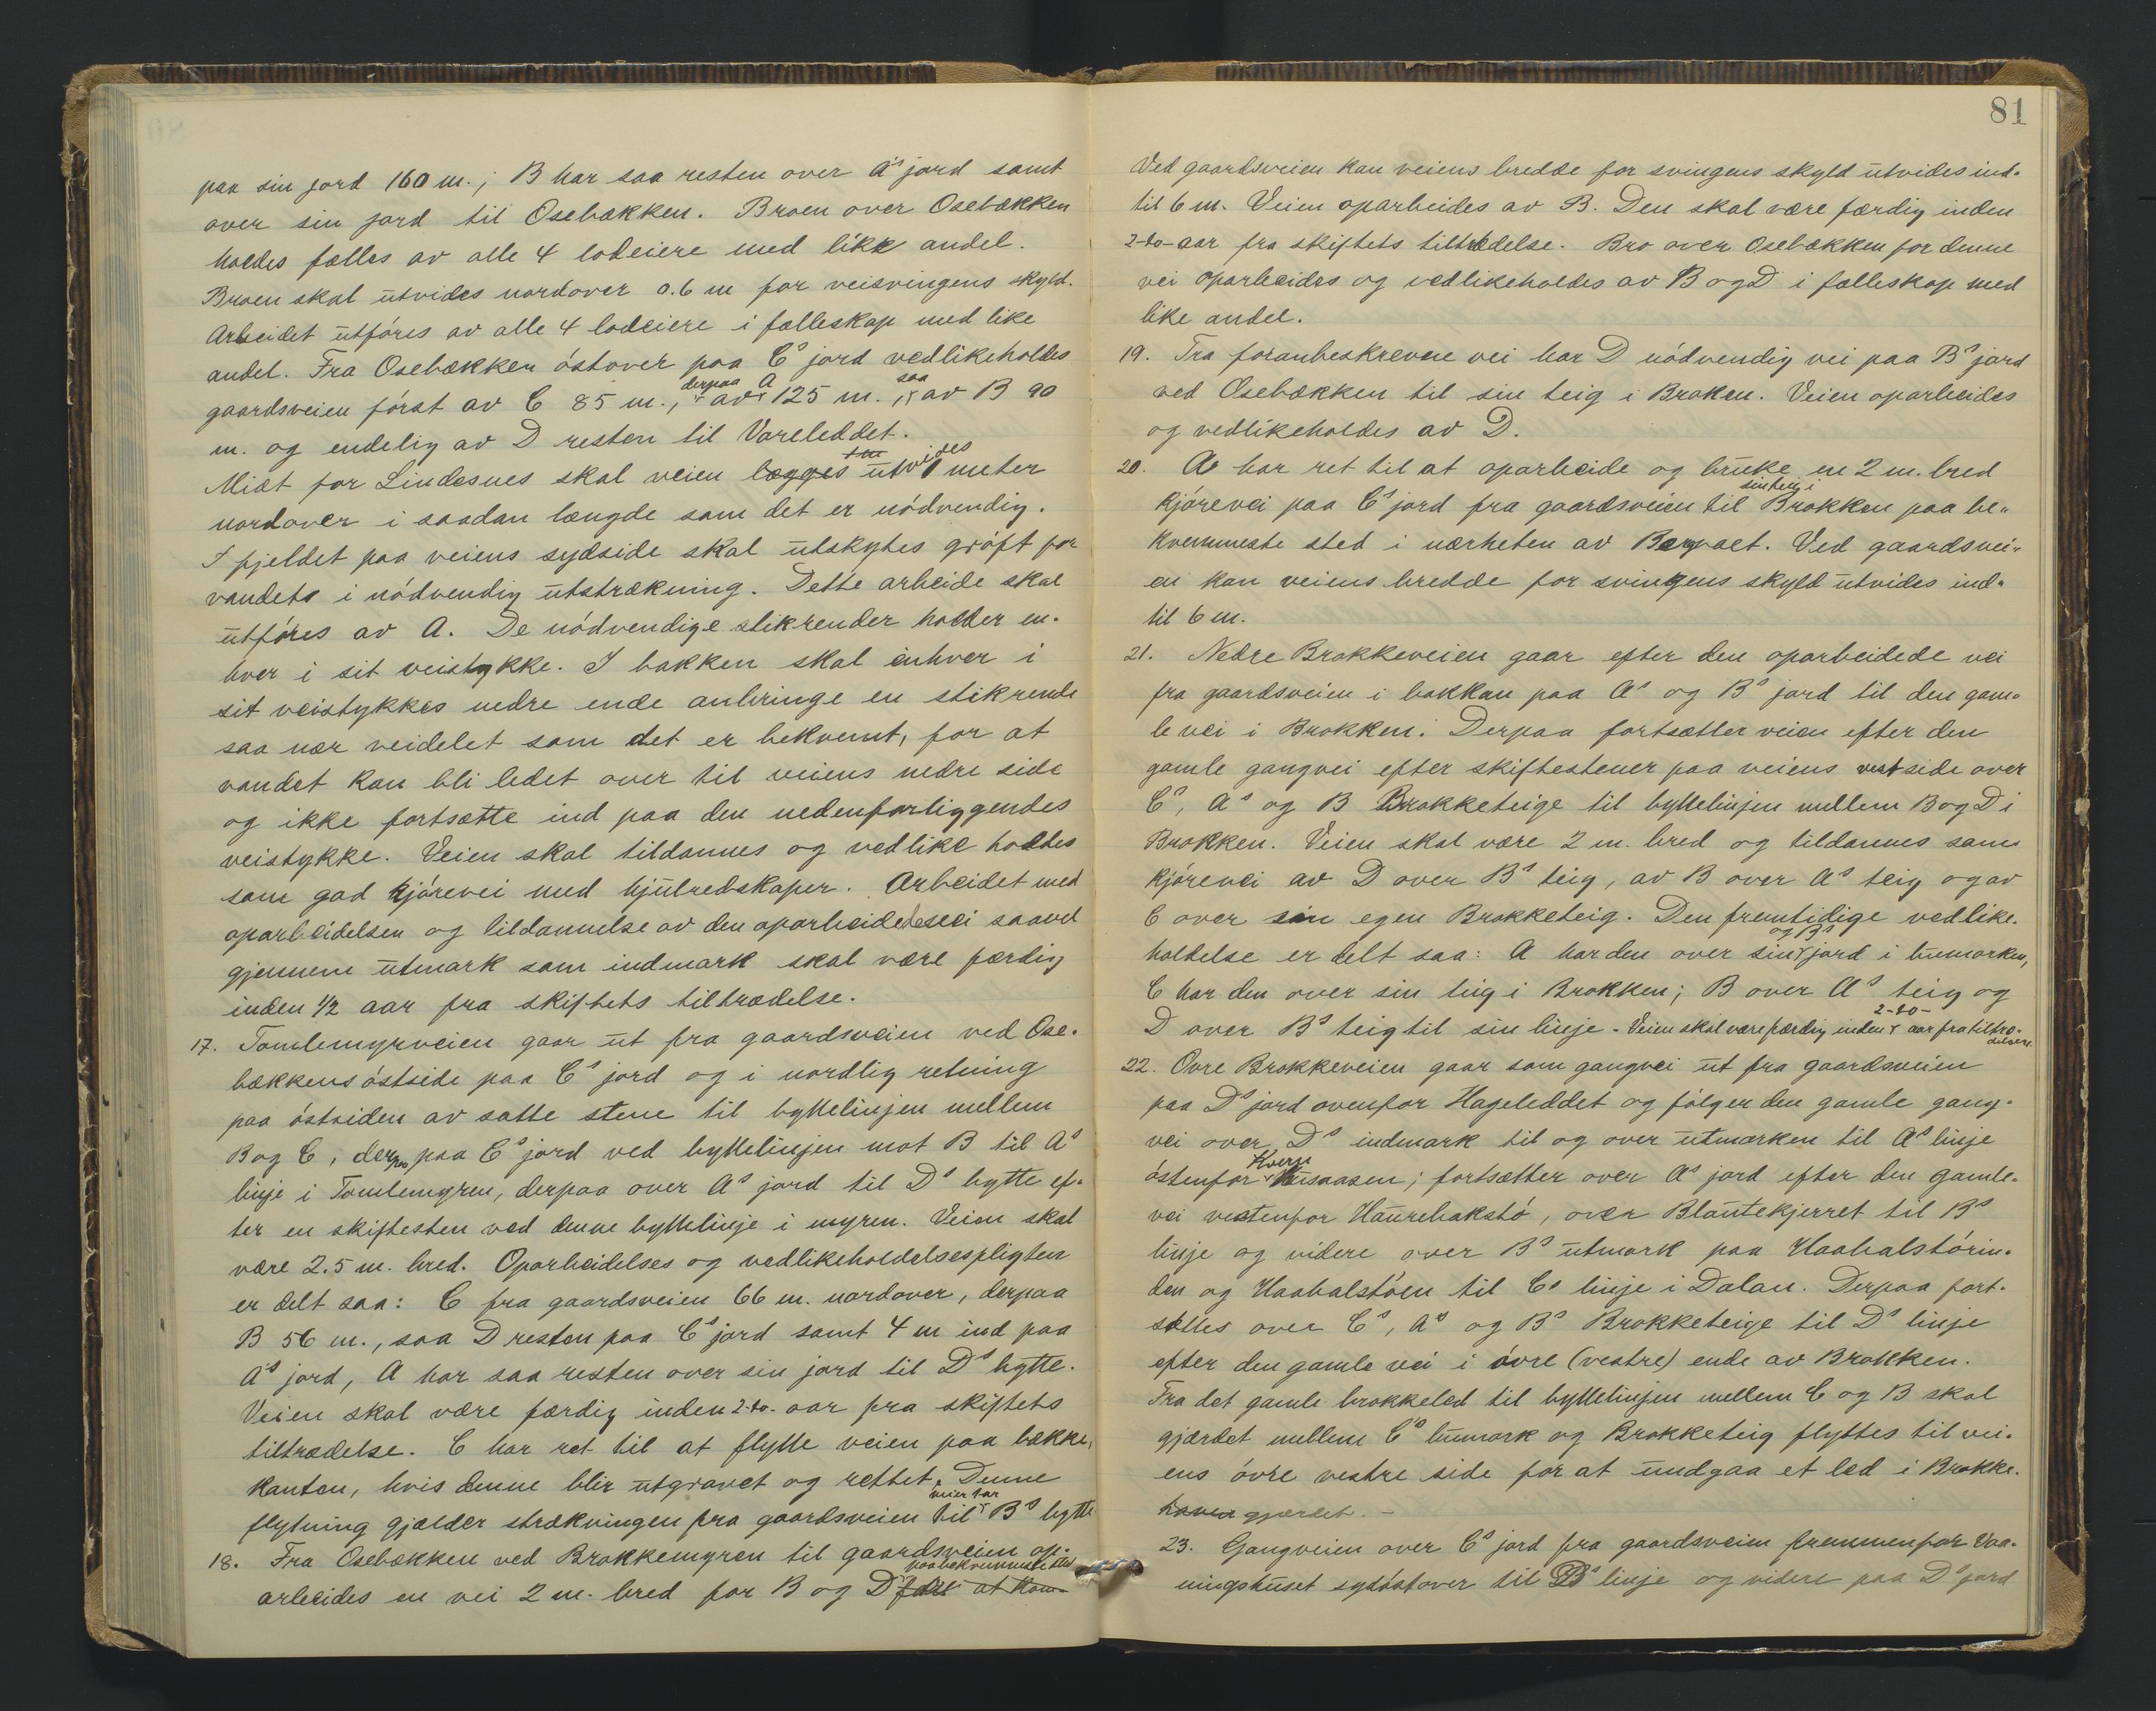 paa sin jord 160 m.; B har saa resten over A's jord samt
over sin jord til Osebækken. Broen over Osebækken
holdes fælles av alle 4 lodeiere med like andel.
Broen skal utvides nordover 0.6 m for veisvingens skyld.
Arbeidet utføres av alle 4 lodeiere i fælleskap med like
andel. Fra Osebækken østover paa C's jord vedlikeholdes
gaardsveien først av C 85 m., derpaa av A 125 m., saa av B 90
m. og endelig av D resten til Vareleddet.
Midt for Lindesnes skal veien utvides 1 meter
nordover i saadan længde som det er nødvendig.
I fjeldet paa veiens sydside skal utskytes grøft for
vandets i nødvendig utstrækning. Dette arbeide skal
utføres av A. De nødvendige stikrender holder en-
hver i sit veistykke. I bakken skal enhver i
sit veistykkes nedre ende anbringe en stikrende
saa nær veidelet som det er bekvemt, for at
vandet kan bli ledet over til veiens nedre side
og ikke fortsætte ind paa den nedenforliggendes
veistykke. Veien skal tildannes og vedlike holdes
som god kjørevei med hjulredskaper. Arbeidet med
oparbeidelsen og tildannelse av den oparbeidede vei saavel
gjennem utmark som indmark skal være færdig
inden 1/2 aar fra skiftets tiltrædelse.
17. Tomlemyrveien gaar ut fra gaardsveien ved Ose-
bækkens østside paa C's jord og i nordlig retning
paa østsiden av satte stene til byttelinjen mellem
B og C, derpaa paa C's jord ved byttelinjen mot B til A's
linje i Tomlemyren, derpaa over A's jord til D's bytte ef-
ter en skiftesten ved denne byttelinje i myren. Veien skal
være 2.5 m. bred. Oparbeidelses og vedlikeholdelsespligten
er delt saa: C fra gaardsveien 66 m. nordover, derpaa
B 56 m., saa D resten paa C's jord samt 4 m ind paa
A's jord, A har saa resten over sin jord til D's bytte.
Veien skal være færdig inden 2-to- aar fra skiftets
tiltrædelse. C har ret til at flytte veien paa bække-
kanten, hvis denne blir utgravet og rettet. Denne
flytning gjælder strækningen fra gaardsveien til B's bytte
18. Fra Osebækken ved Brokkemyren til gaardsveien op-
arbeides en vei 2 m. bred for B og D paa bekvemmeste sted
81
Ved gaardsveien kan veiens bredde for svingens skyld utvides ind-
til 6 m. Veien oparbeides av B. Den skal være færdig inden
2-to-aar fra skiftets tiltrædelse. Bro over Osebækken for denne
vei oparbeides og vedlikeholdes av B og D i fælleskap med
like andel.
19. Fra foranbeskrevne vei har D nødvendig vei paa B's jord
ved Osebækken til sin teig i Broken. Veien oparbeides
og vedlikeholdes av D.
20. A har ret til at oparbeide og bruke en 2 m. bred
kjørevei paa C's jord fra gaardsveien til sin teig i Brokken paa be-
kvemmeste sted i nærheten av . Ved gaardsvei-
en kan veiens bredde for svingens skyld utvides ind-
til 6 m.
21. Nedre Brokkeveien gaar efter den oparbeidede vei
fra gaardsveien i bakken paa A's og B's jord til den gam-
le vei i Brokken. Derpaa fortsætter veien efter den
gamle gangvei efter skiftestener paa veiens vestside over
C's, A's og B Brokketeige til byttelinjen mellem B og D i
Brokken. Veien skal være 2 m. bred og tildannes som
kjørevei av D over B's teig, av B over A's teig og av
C over sin egen Brokketeig. Den fremtidige vedlike-
holdelse er delt saa: A har den over sin og B's jord i bumarken,
C har den over sin teig i Brokken; B over A's teig og
D over B's teig til sin linje. Veien skal være færdig inden 2-to- aar fra tiltræ-
delsen.
22. Øvre Brokkeveien gaar som gangvei ut fra gaardsveien
paa D's jord ovenfor Hageleddet og følger den gamle gang-
vei over D's indmark til og over utmarken til A's linje
østenfor Kvernhusaasen; fortsætter over A's jord efter den gamle-
vei vestenfor Haurehakstø, over Blautekjerret til B's
linje og videre over B's utmark paa Haahalstørin-
den og Haahalstøen til C's linje i Dalen. Derpaa fort-
sættes over C's, A's og B's Brokketeige til D's linje
efter den gamle vei i øvre (vestre) ende av Brokken.
Fra det gamle brokkeled til byttelinjen mellem C og B skal
gjærdet mellem C's bumark og Brokketeig flyttes til vei-
ens øvre vestre side for at undgaa et led i Brokke-
gjærdet. -
23. Gangveien over C's jord fra gaardsveien fremmenfor Vaa-
ningshuset sydøstover til B's linje og videre paa D's jord